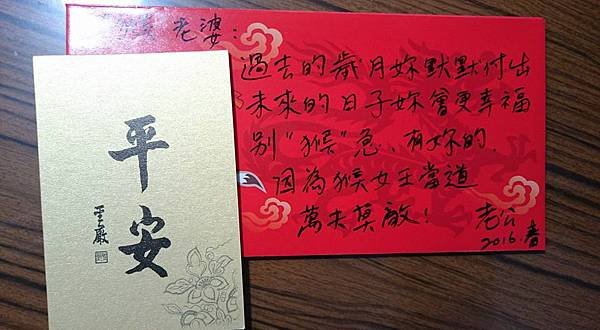 老婆：
過去的歲月妳默默付出
未來的日子妳會更幸福
別"猴"急、有妳的.
因為猴女王當道
萬夫莫敵！
老公
2016.春
平安
聖嚴